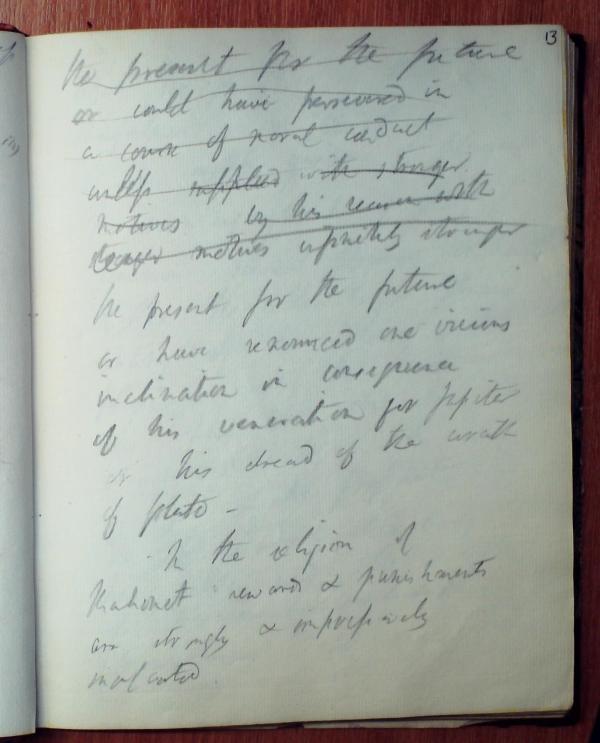 13
the present for the future
or could have persevered in
a course of moral conduct
unless supplied with stronger
motives by his reason with
stronger motives infinitely stronger
the present for the future
or have renounced one vicious
inclination in consequence
of his veneration for Jupiter
or his dread of the wrath
of Pluto –
In the religion of
Mahomet rewards & punishments
are strongly & impressively
inculcated.